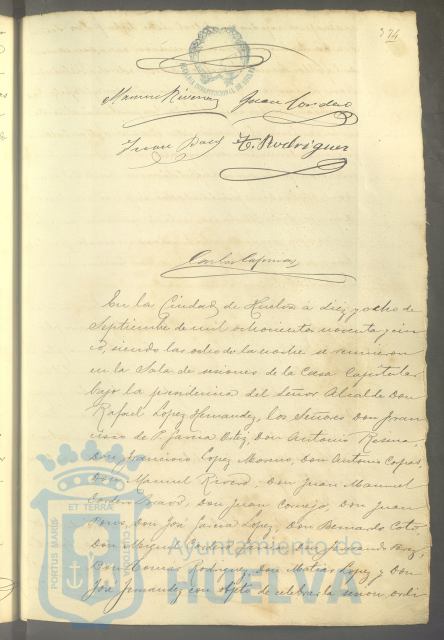 374
Manuel Rivero Juan Cordero
Juan T. Rodriguez
Carlos
En la Ciudad de Huelva á diez y ocho de
Septiembre de mil ochocientos noventa y cin
co, siendo las ocho de la noche se reunieron
en la Sala de sesiones de la Casa Capitular
bajo la presidencia del Señor Alcalde Don
Rafael Lopez Hernandez, los Señores Don Fran
cisco de P. Garcia Ortiz, Don Antonio
Don Francisco Lopez Moreno, Don Antonio
Don Manuel Rivero, Don Juan Manuel
Cordero Don Juan Cornejo, Don Juan
Don José Garcia Lopez, Don Bernardo Coto,
Don Miguel
Don Tomas Rodriguez, Don Matias Lopez y Don
José Fernandez con objeto de celebrar la sesion ordi
ET TERRÆ
PORTUS MARIS
CUSTODIA
Ayuntamiento de
HUELVA